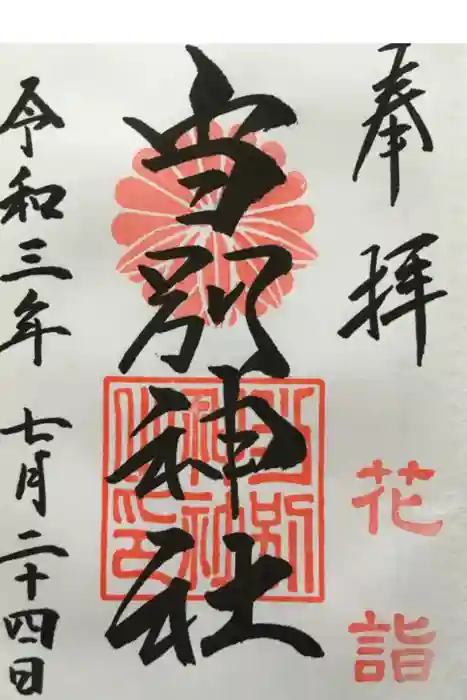 奉拝
花詣
当別神社
令和三年 七月二十四日